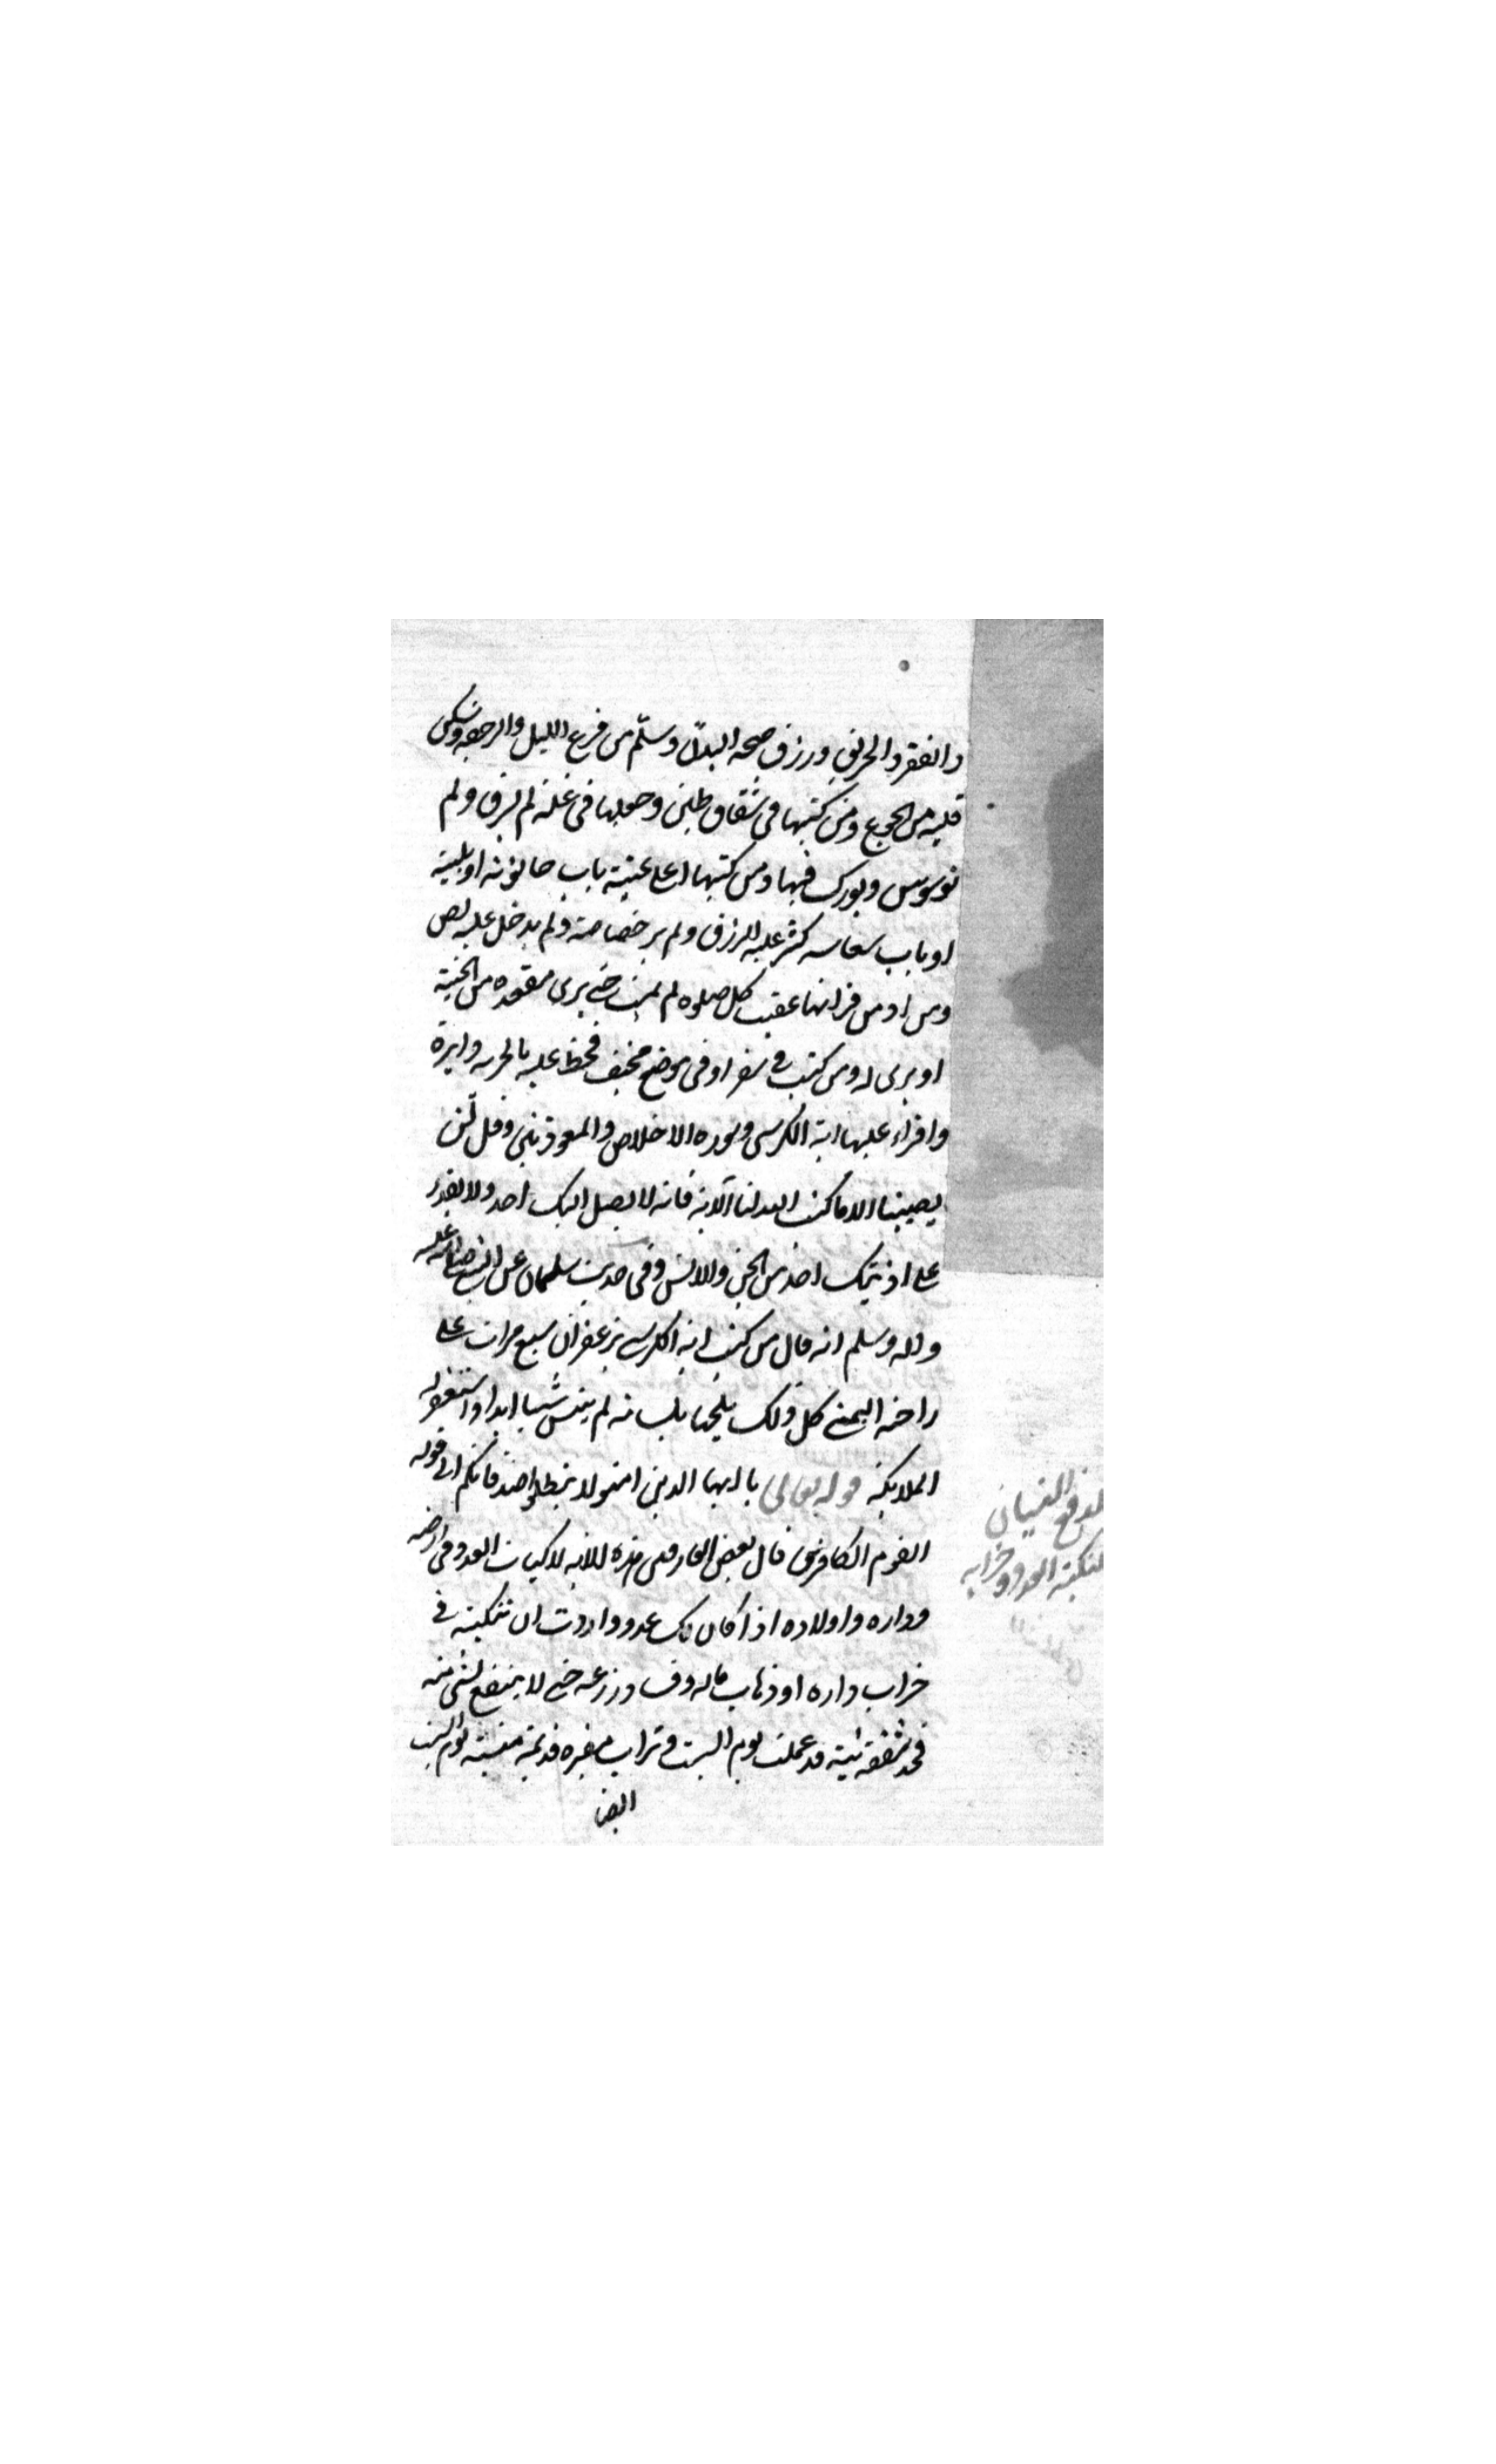 والفقر والحريق ورزق صحه البدن وسلم من فزع الليل والرجفه وسكن
قلبه من الجوع ومن كتبها في شقاق طين وجعلها في غلة لم تسرق ولم
توسوس وبورك فيها ومن كتبها اعلى عتبة باب حانوته او بيته
او باب كثر عليه الرزق ولم ير خصاصة ولم يدخل عليه لص
ومن ادمن قرانها عقب كل صلوه لم يمت حتى يرى مقعده من الجنة
او يرى له ومن كتب في سفر او في موضع مخيف فخط عليه دايرة
واقراء عليها اية الكرسي وسوره الاخلاص والمعوذتين وقل لن
يصيبنا الا ما كتب الله لنا الاية فانه لا يصل اليك احد ولا يقدر
على احد من الجن والانس وفي حديث سلمان عن النبي صلى الله عليه
واله وسلم انه قال من كتب اية الكرسي بزعفران سبع مرات على
راحته اليمنى كل ذلك يلحسها بلسانه لم ينس شيا ابدا واستغفر له
الملائكة قوله تعالى يا ايها الذين امنو لا تبطلوا صدقاتكم الى قوله
القوم الكافرين قال بعض العارفين هذه الاية العدو في ارضه
وداره واولاده اذا كان لك عدو واردت ان تنكبه في
خراب داره او ذهاب ماله وزرعه حتى لا ينتفع بشي منه
فخذ شقفة نية قد عملت يوم السبت وتراب مقبره قديمة يوم السبت
ايضا
لدفع النسيان
لنكبة العدو وخرابه